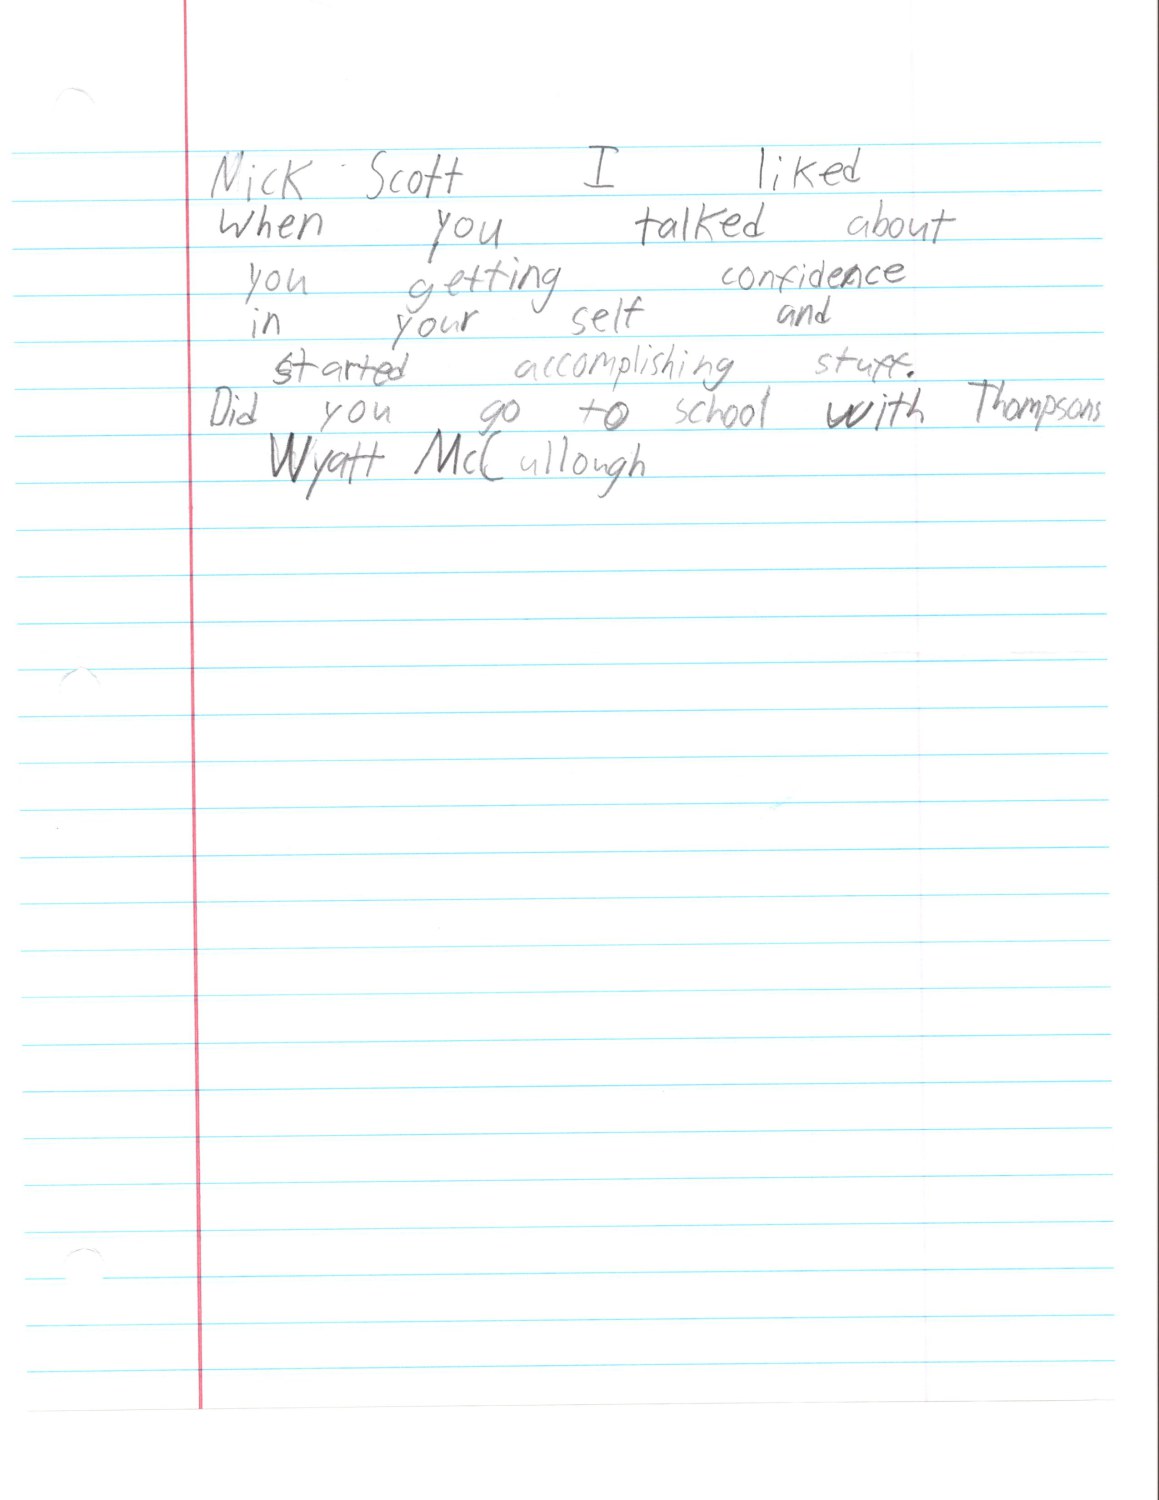 Nick Scott I liked
when you talked about
you getting confidence
in your self and
started accomplishing stuff.
Did you go to school with Thompsons
Wyatt McCullough